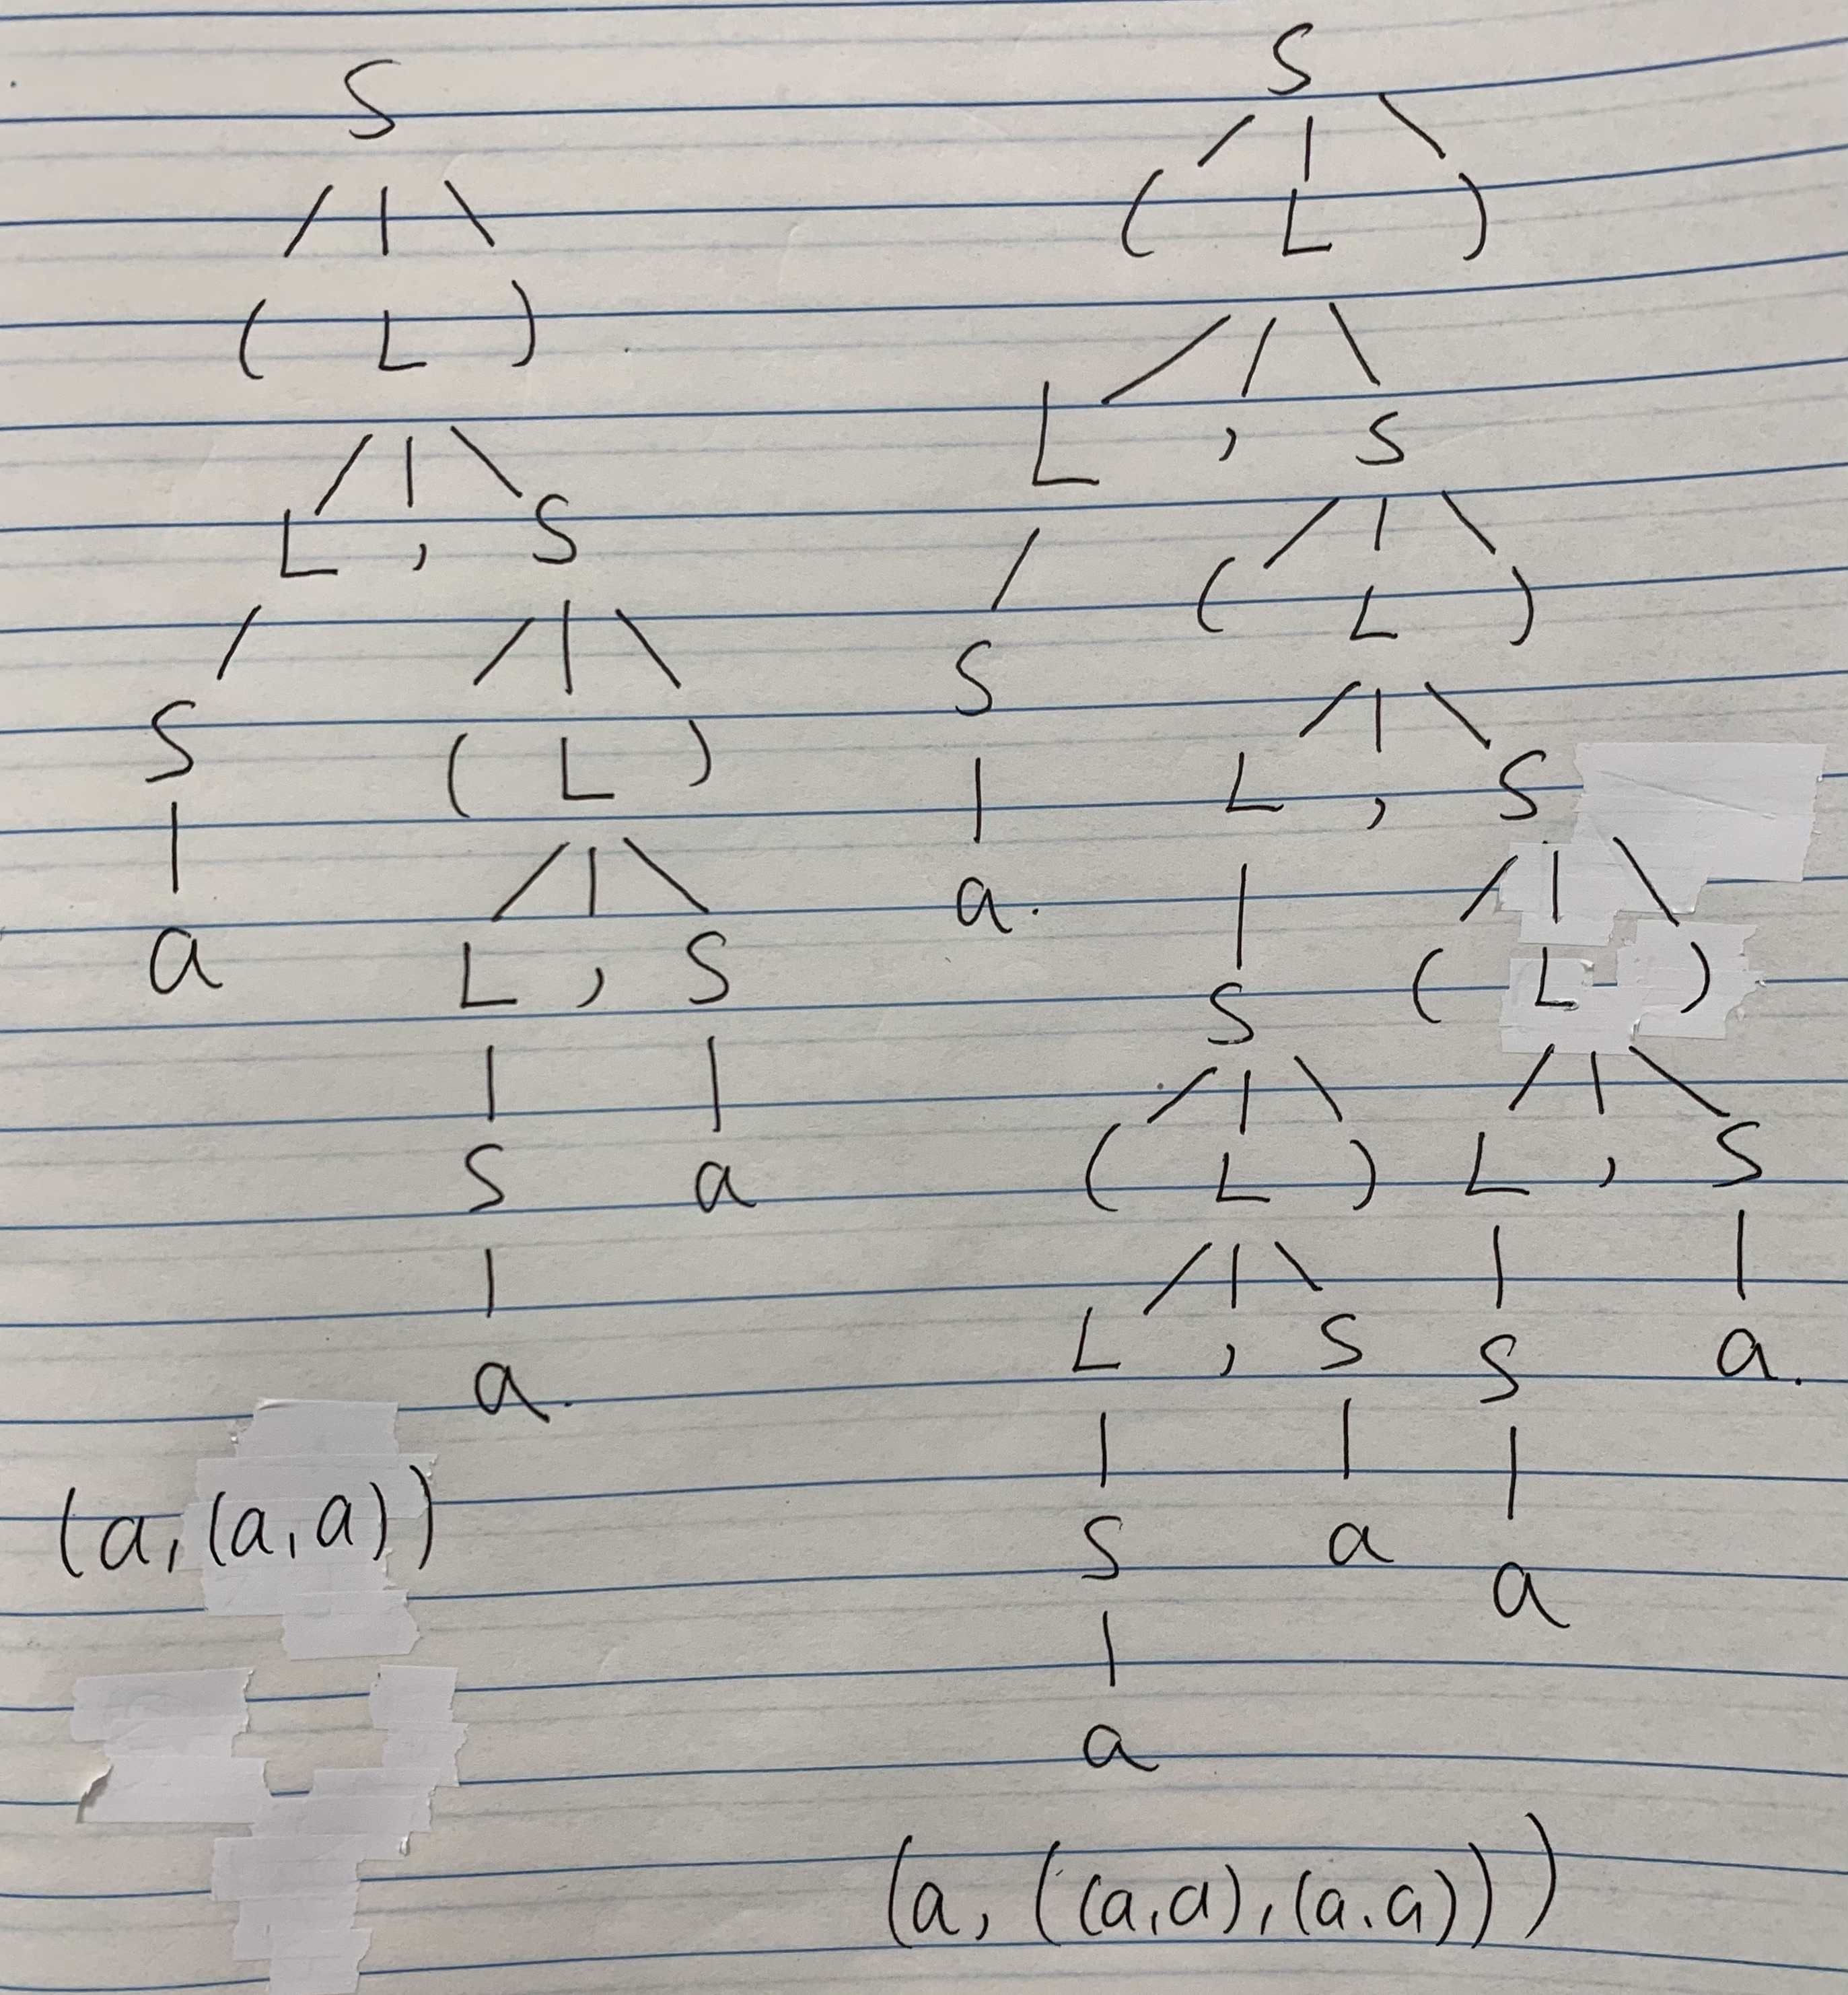 S
( L )
L , S
S ( L )
a L , S
S a
a.
(a, (a, a))
S
( L )
L , S
( L )
S L , S
a. ( L )
S
( L ) L , S
L , S S a.
S a a
a
(a, ((a, a), (a. a)))